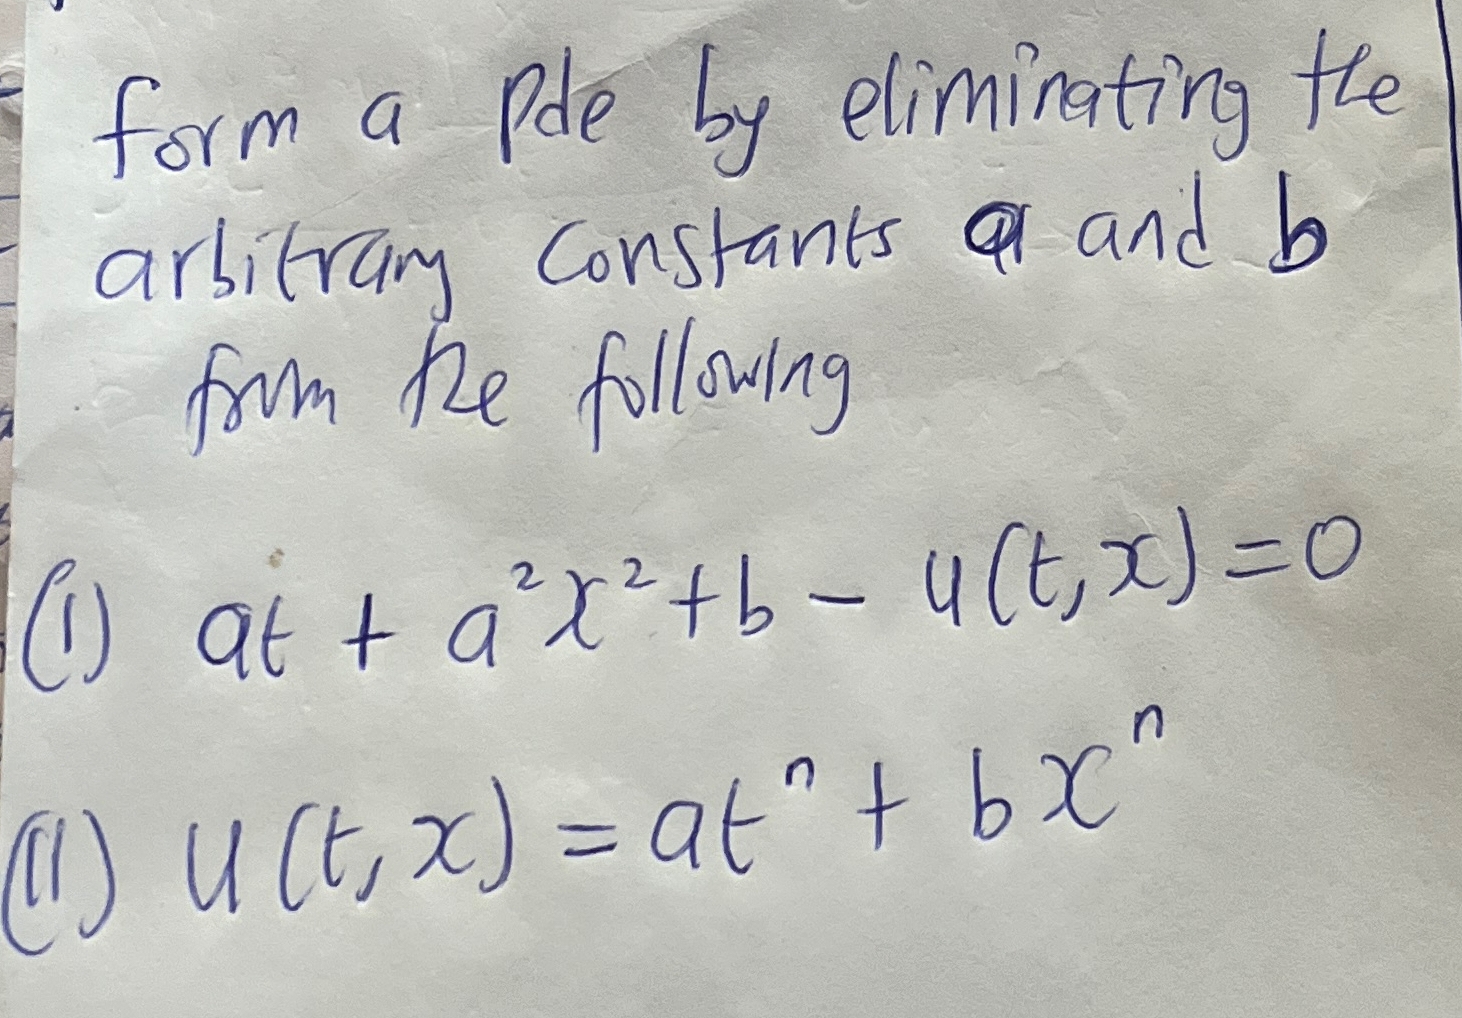 form a Pde by eliminating the
arbitrary constants a and b
from the following
(I) at + a²x² + b - u(t, x) = 0
(II) u(t, x) = atⁿ + bxⁿ